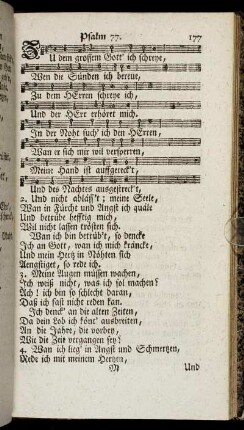 Psalm 77. 177
ZU dem grossem Gott' ich schreye,
Wen die Sünden ich bereut,
Zu dem HErren schreye ich,
Und der HErr erhört mich.
Jn der Noht such' ich den HErren,
Wan er sich mir wil versperren,
Meine Hand ist auffgereck't,
Und des Nachtes ausgestreck't,
2. Und nicht abläss't; meine Seele,
Wan in Fürcht und Angst ich quäle
Und betrübe hefftig mich,
Wil nicht lassen trösten sich.
Wan ich bin betrüb't, so dencke
Jch an Gott, wan ich mich kräncke,
Und mein Hertz in Nöhten sich
Aengstiget, so rede ich.
3. Meine Augen müssen wachen,
Jch weiß nicht, was ich sol machen?
Ach! ich bin so schlecht daran,
Daß ich fast nicht reden kan.
Jch denck' an die alten Zeiten,
Da dein Lob ich könt' ausbreiten,
An die Jahre, die vorbey,
Wie die Zeit vergangen sey?
4. Wan ich lieg' in Angst und Schmertzen,
Rede ich mit meinem Hertzen,
M Und